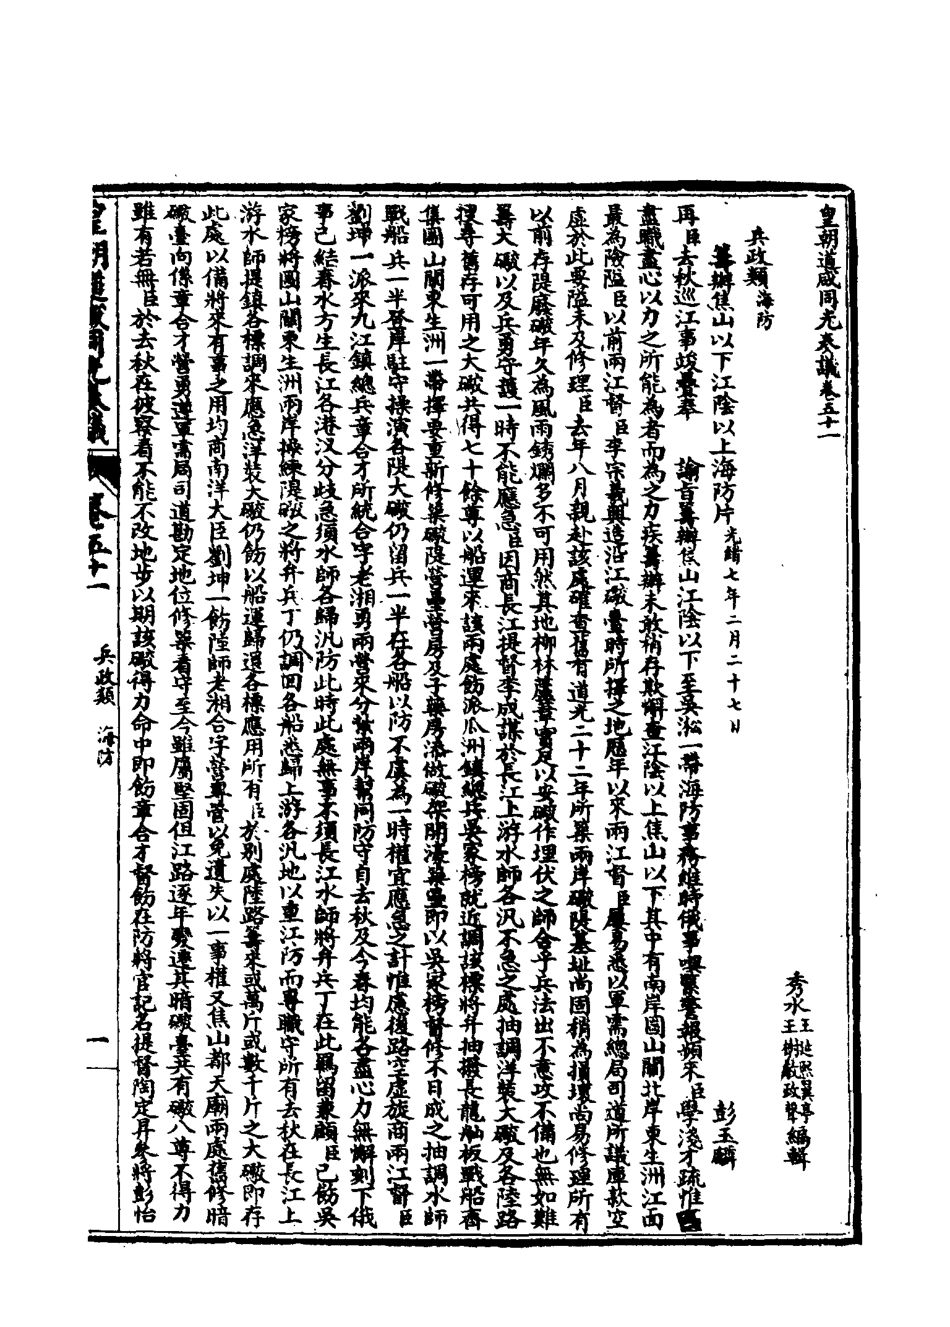 皇朝道咸同光奏議卷五十一
秀水王延熙翼亭王樹敏政聲編輯
兵政類 海防
籌辦焦山以下江陰以上海防片光緒七年二月二十七日 彭玉麟
再臣去秋巡江事竣疊奉 諭旨籌辦焦山江陰以下至吳淞一帶海防事務維時俄事喫緊警報頻來臣學淺才疏惟
盡職盡心以力之所能為者而為之力疾籌辦未敢稍存欺懈查江陰以上焦山以下其中有南岸圌山關北岸東生洲江面
最為險隘臣以前兩江督臣李宗羲興造沿江礮臺時所擇之地歷年以來兩江督臣屢易悉以軍需總局司道所議庫款空
虛於此要隘未及修理臣去年八月親赴該處確查舊有道光二十二年所築兩岸礮隄基址尚固稍為損壞尚易修理所有
以前存隄廢礮年久為風雨銹爛多不可用然其地柳林蘆葦實足以安礮作埋伏之師合乎兵法出不意攻不備也無如難
籌大礮以及兵勇守護一時不能應急臣因商長江提督李成謀於長江上游水師各汛不急之處抽調洋裝大礮及各陸路
搜尋舊存可用之大礮共得七十餘尊以船運來該兩處飭派瓜洲鎮總兵吳家榜就近調該標將弁抽撥長龍舢板戰船齊
集圌山關東生洲一帶擇要重新修築礮隄營壘營房及子藥房添做礮架開濠築壘即以吳家榜督修不日成之抽調水師
戰船兵一半登岸駐守操演各隄大礮仍留兵一半在各船以防不虞為一時權宜應急之計惟慮後路空虛旋商兩江督臣
劉坤一派來九江鎮總兵章合才所統合字老湘勇兩營來分紮兩岸幫同防守自去秋及今春均能各盡心力無懈刻下俄
事已結春水方生長江各港汊分歧急須水師各歸汛防此時此處無事不須長江水師將弁兵丁在此羈留兼顧臣已飭吳
家榜將圌山關東生洲兩岸操練隄礮之將弁兵丁仍調回各船悉歸上游各汛地以重江防而專職守所有去秋在長江上
游水師提鎮各標調來應急洋裝大礮仍飭以船運歸還各標應用所有臣於別處陸路籌來或萬斤或數千斤之大礮即存
此處以備將來有事之用均商南洋大臣劉坤一飭陸師老湘合字營專管以免遺失以一事權又焦山都天廟兩處舊修暗
礮臺向係章合才營勇遵軍需局司道勘定地位修築看守至今雖屬堅固但江路逐年變遷其暗礮臺共有礮八尊不得力
雖有若無臣於去秋在彼察看不能不改地步以期該礮得力命中即飭章合才督飭在防將官記名提督陶定昇參將彭怡
皇朝道咸同光奏議 卷五十一 兵政類 海防 一